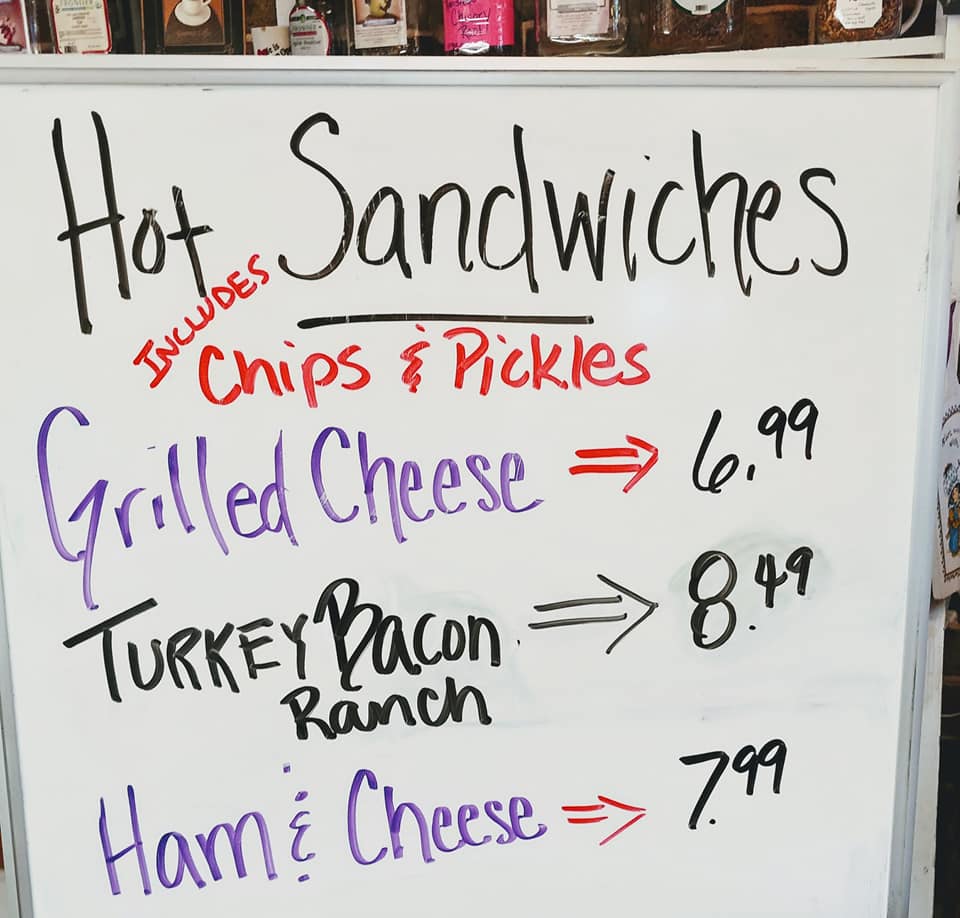 Hot Sandwiches
INCLUDES
Chips & Pickles
Grilled Cheese ⇒ 6.99
TURKEY Bacon ⇒ 8.49
Ranch
Ham & Cheese ⇒ 7.99